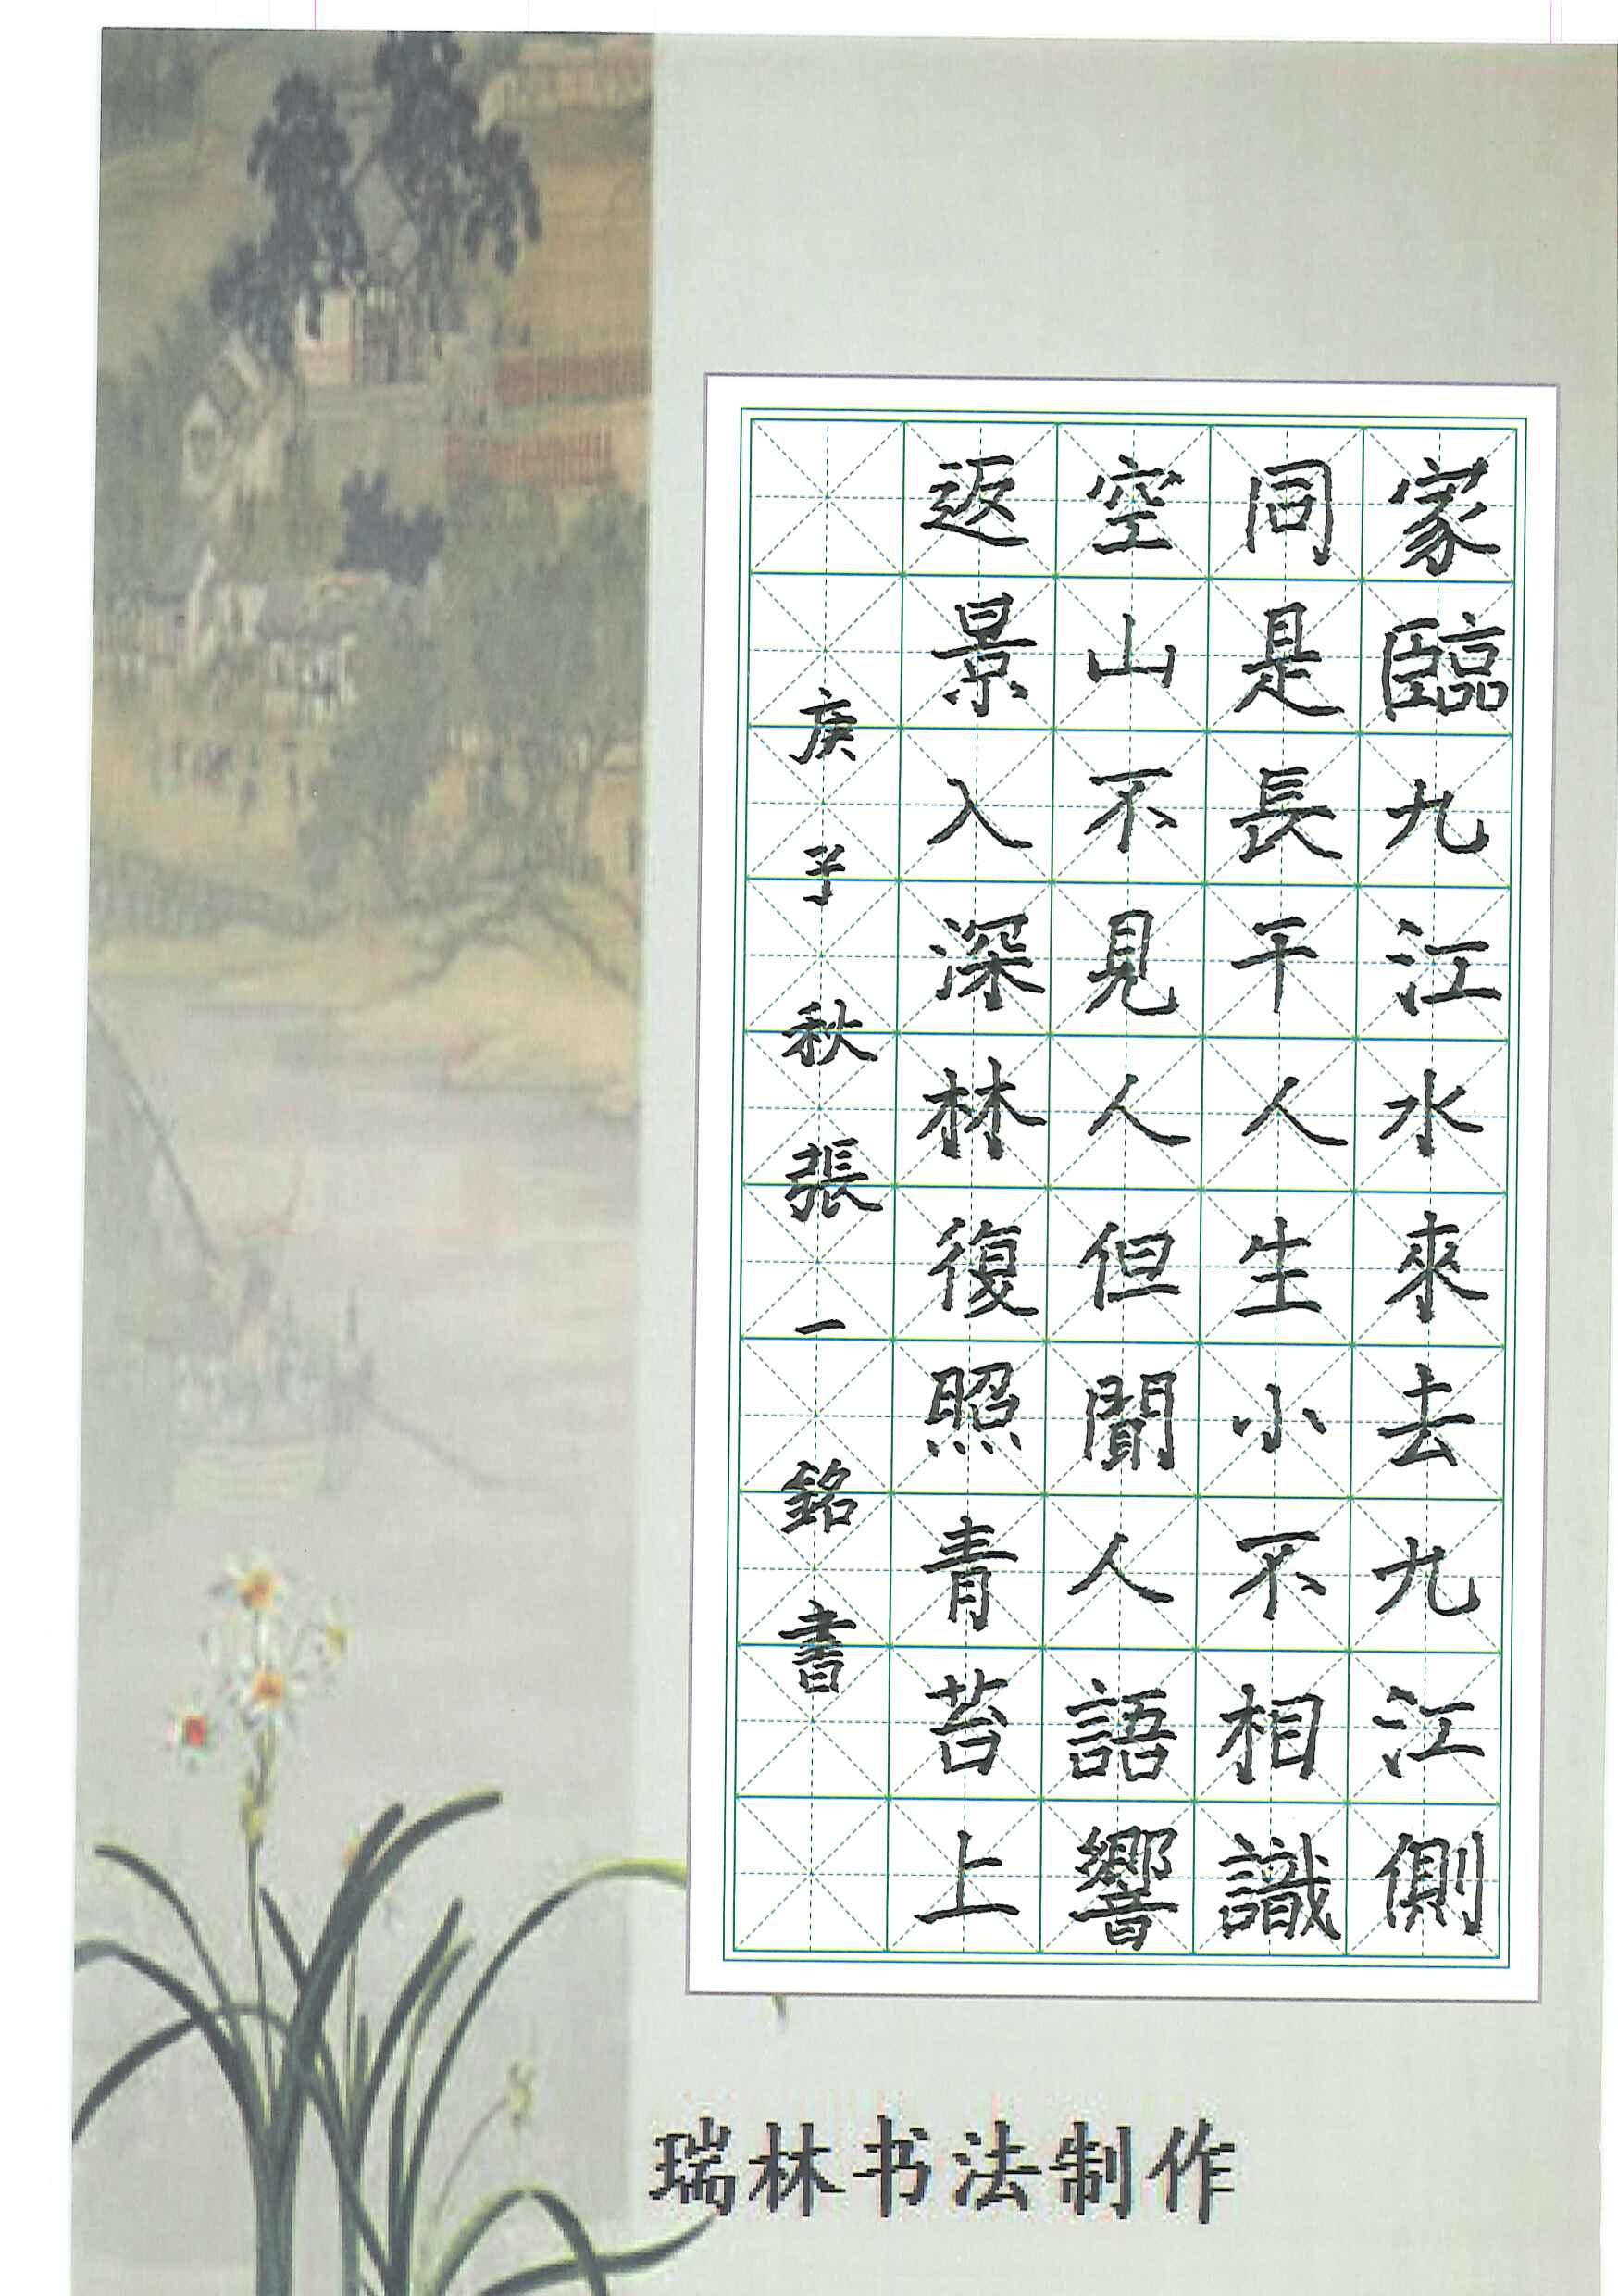 家臨九江水來去九江側
同是長干人生小不相識
空山不見人但聞人語響
返景入深林復照青苔上
庚子秋張一銘書
瑞林书法制作